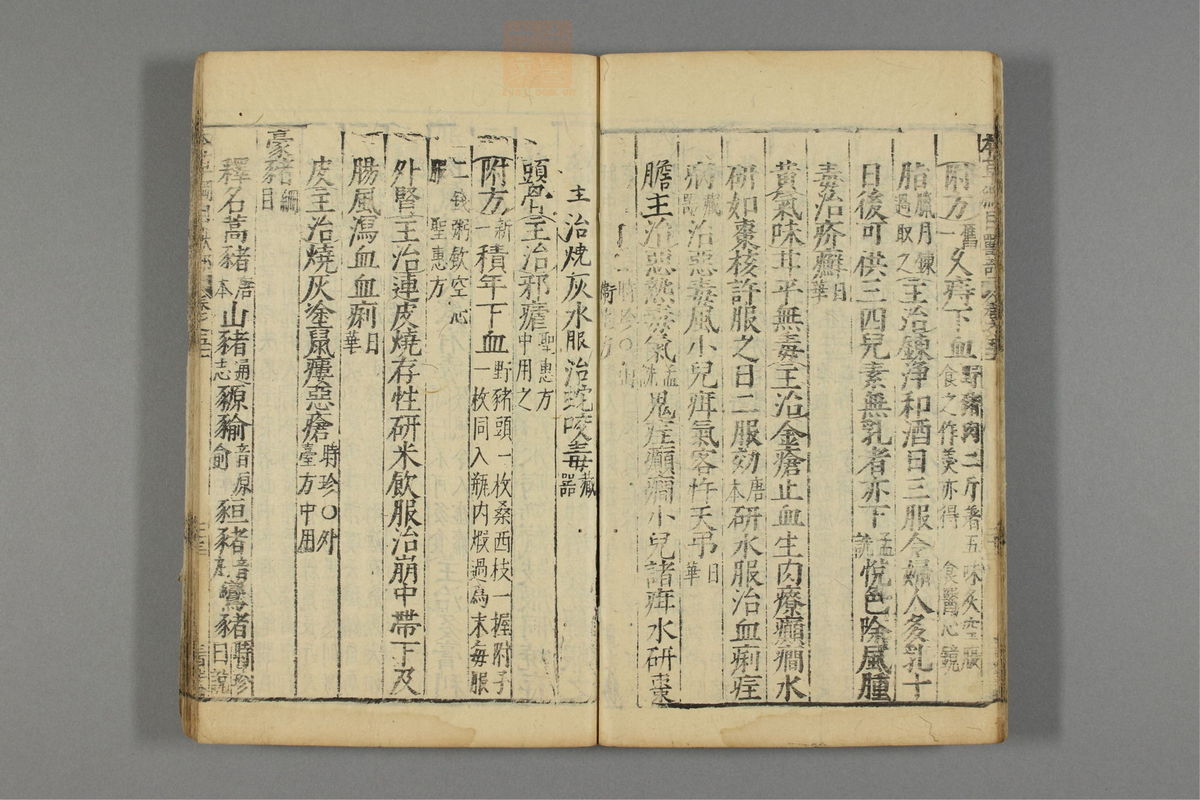 附方舊一久痔下血野豬肉二斤著五味炙空腹食之作羹亦得 食醫心鏡
脂臘月鍊過取之主治鍊淨和酒日三服令婦人多乳十
日後可供三四兒素無乳者亦下孟詵悅色除風腫
毒治疥癬日華
黃氣味甘平無毒主治金瘡止血生肉療癲癇水
研如棗核許服之日二服効唐本研水服治血痢疰
病藏器治惡毒風小兒疳氣客忤天弔日華
膽主治惡熱毒氣孟詵鬼疰癲癇小兒諸疳水研棗
時珍○ 衛 方
主治燒灰水服治蛇咬毒藏器
頭骨主治邪瘧聖惠方中用之
附方新一積年下血野豬頭一枚桑西枝一握附子一枚同入瓶內煅過為末每服
二錢粥飲空心服聖惠方
外腎主治連皮燒存性研米飲服治崩中帶下及
腸風瀉血血痢日華
皮主治燒灰塗鼠瘻惡瘡時珍○外臺方中用
豪豬綱目
釋名蒿豬唐本山豬通志豲㺄音原俞豲豬音鸞豬時珍曰說